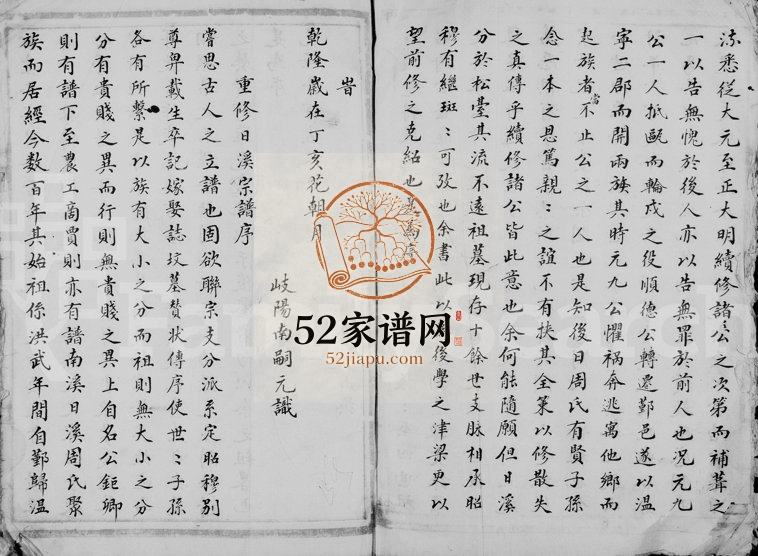 法悉從大元至正大明續修諸公之次第而補葺之
一以告無愧於後人亦以告無罪於前人也況元九
公一人抵甌而輪戍之役順德公轉遷鄞邑遂以温
寧二郡而開兩族其時元九公懼禍奔逃寓他鄉而
起族者當不止公之一人也是知後日周氏有賢子孫
念一本之恩篤親〻之誼不有挾其全策以修散失
之真傳乎續修諸公皆此意也余何能隨願但日溪
分於松臺其流不遠祖墓現存十餘世支脉相承昭
穆有繼斑〻可攷也余書此以 後學之津梁更以
望前修之克紹也
旹
乾隆嵗在丁亥花朝月
岐陽南嗣元識
重修日溪宗譜序
嘗思古人之立譜也固欲聯宗支分派系定昭穆别
尊卑載生卒記嫁娶誌坟墓贊狀傳序使世〻子孫
各有所繫是以族有大小之分而祖則無大小之分
分有貴賤之異而行則無貴賤之異上自名公鉅卿
則有譜下至農工商賈則亦有譜南溪日溪周氏聚
族而居經今数百年其始祖係洪武年間自鄞歸温
52家谱网
52jiapu.com